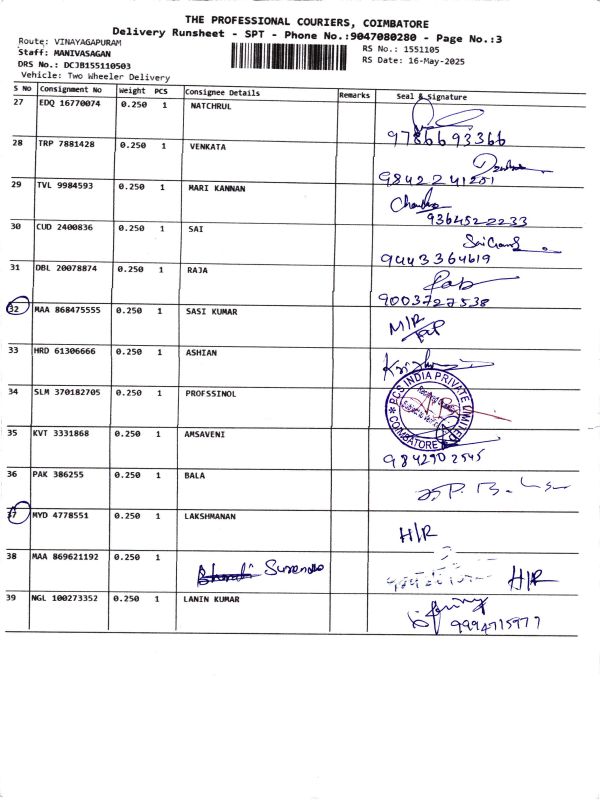 THE PROFESSIONAL COURIERS, COIMBATORE
Delivery Runsheet - SPT - Phone No.:9047080280 - Page No.:3
Route: VINAYAGAPURAM RS No.: 1551105
Staff: MANIVASAGAN RS Date: 16-May-2025
DRS No.: DCJB155110503
Vehicle: Two Wheeler Delivery
S No Consignment No Weight PCS Consignee Details Remarks Seal & Signature
27 EDQ 16770074 0.250 1 NATCHRUL
9786693366
28 TRP 7881428 0.250 1 VENKATA
9842241251
29 TVL 9984593 0.250 1 MARI KANNAN
9364522233
30 CUD 2400836 0.250 1 SAI
9443364619
31 DBL 20078874 0.250 1 RAJA
9003727538
32 MAA 868475555 0.250 1 SASI KUMAR M/R
33 HRD 61306666 0.250 1 ASHIAN
34 SLM 370182705 0.250 1 PROFSSINOL
PCS INDIA PRIVATE LIMITED
COIMBATORE
35 KVT 3331868 0.250 1 AMSAVENI
9842902545
36 PAK 386255 0.250 1 BALA
37 MYD 4778551 0.250 1 LAKSHMANAN
H/R
38 MAA 869621192 0.250 1 H/R
39 NGL 100273352 0.250 1 LANIN KUMAR
9994715977